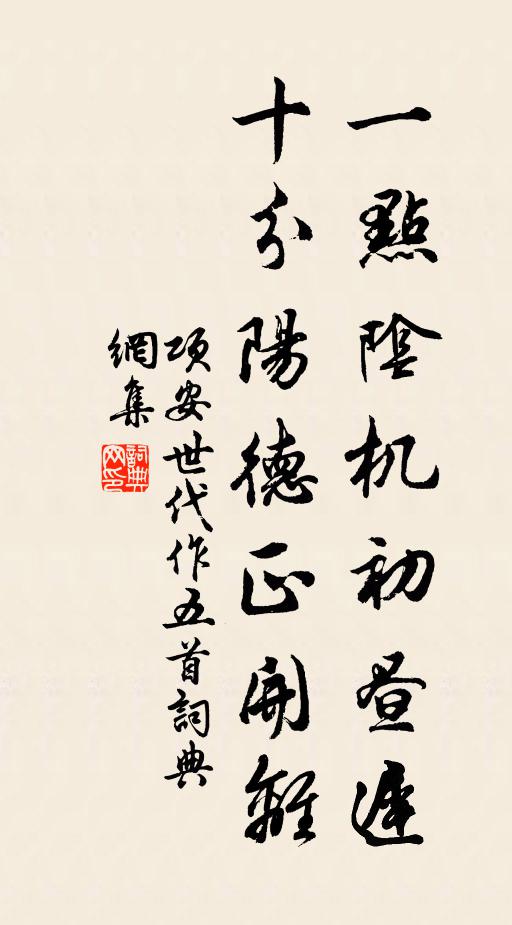 一點陰机初晝遲
十分陽德正開離
項安世代作五首詞典
網集
詞典
网印